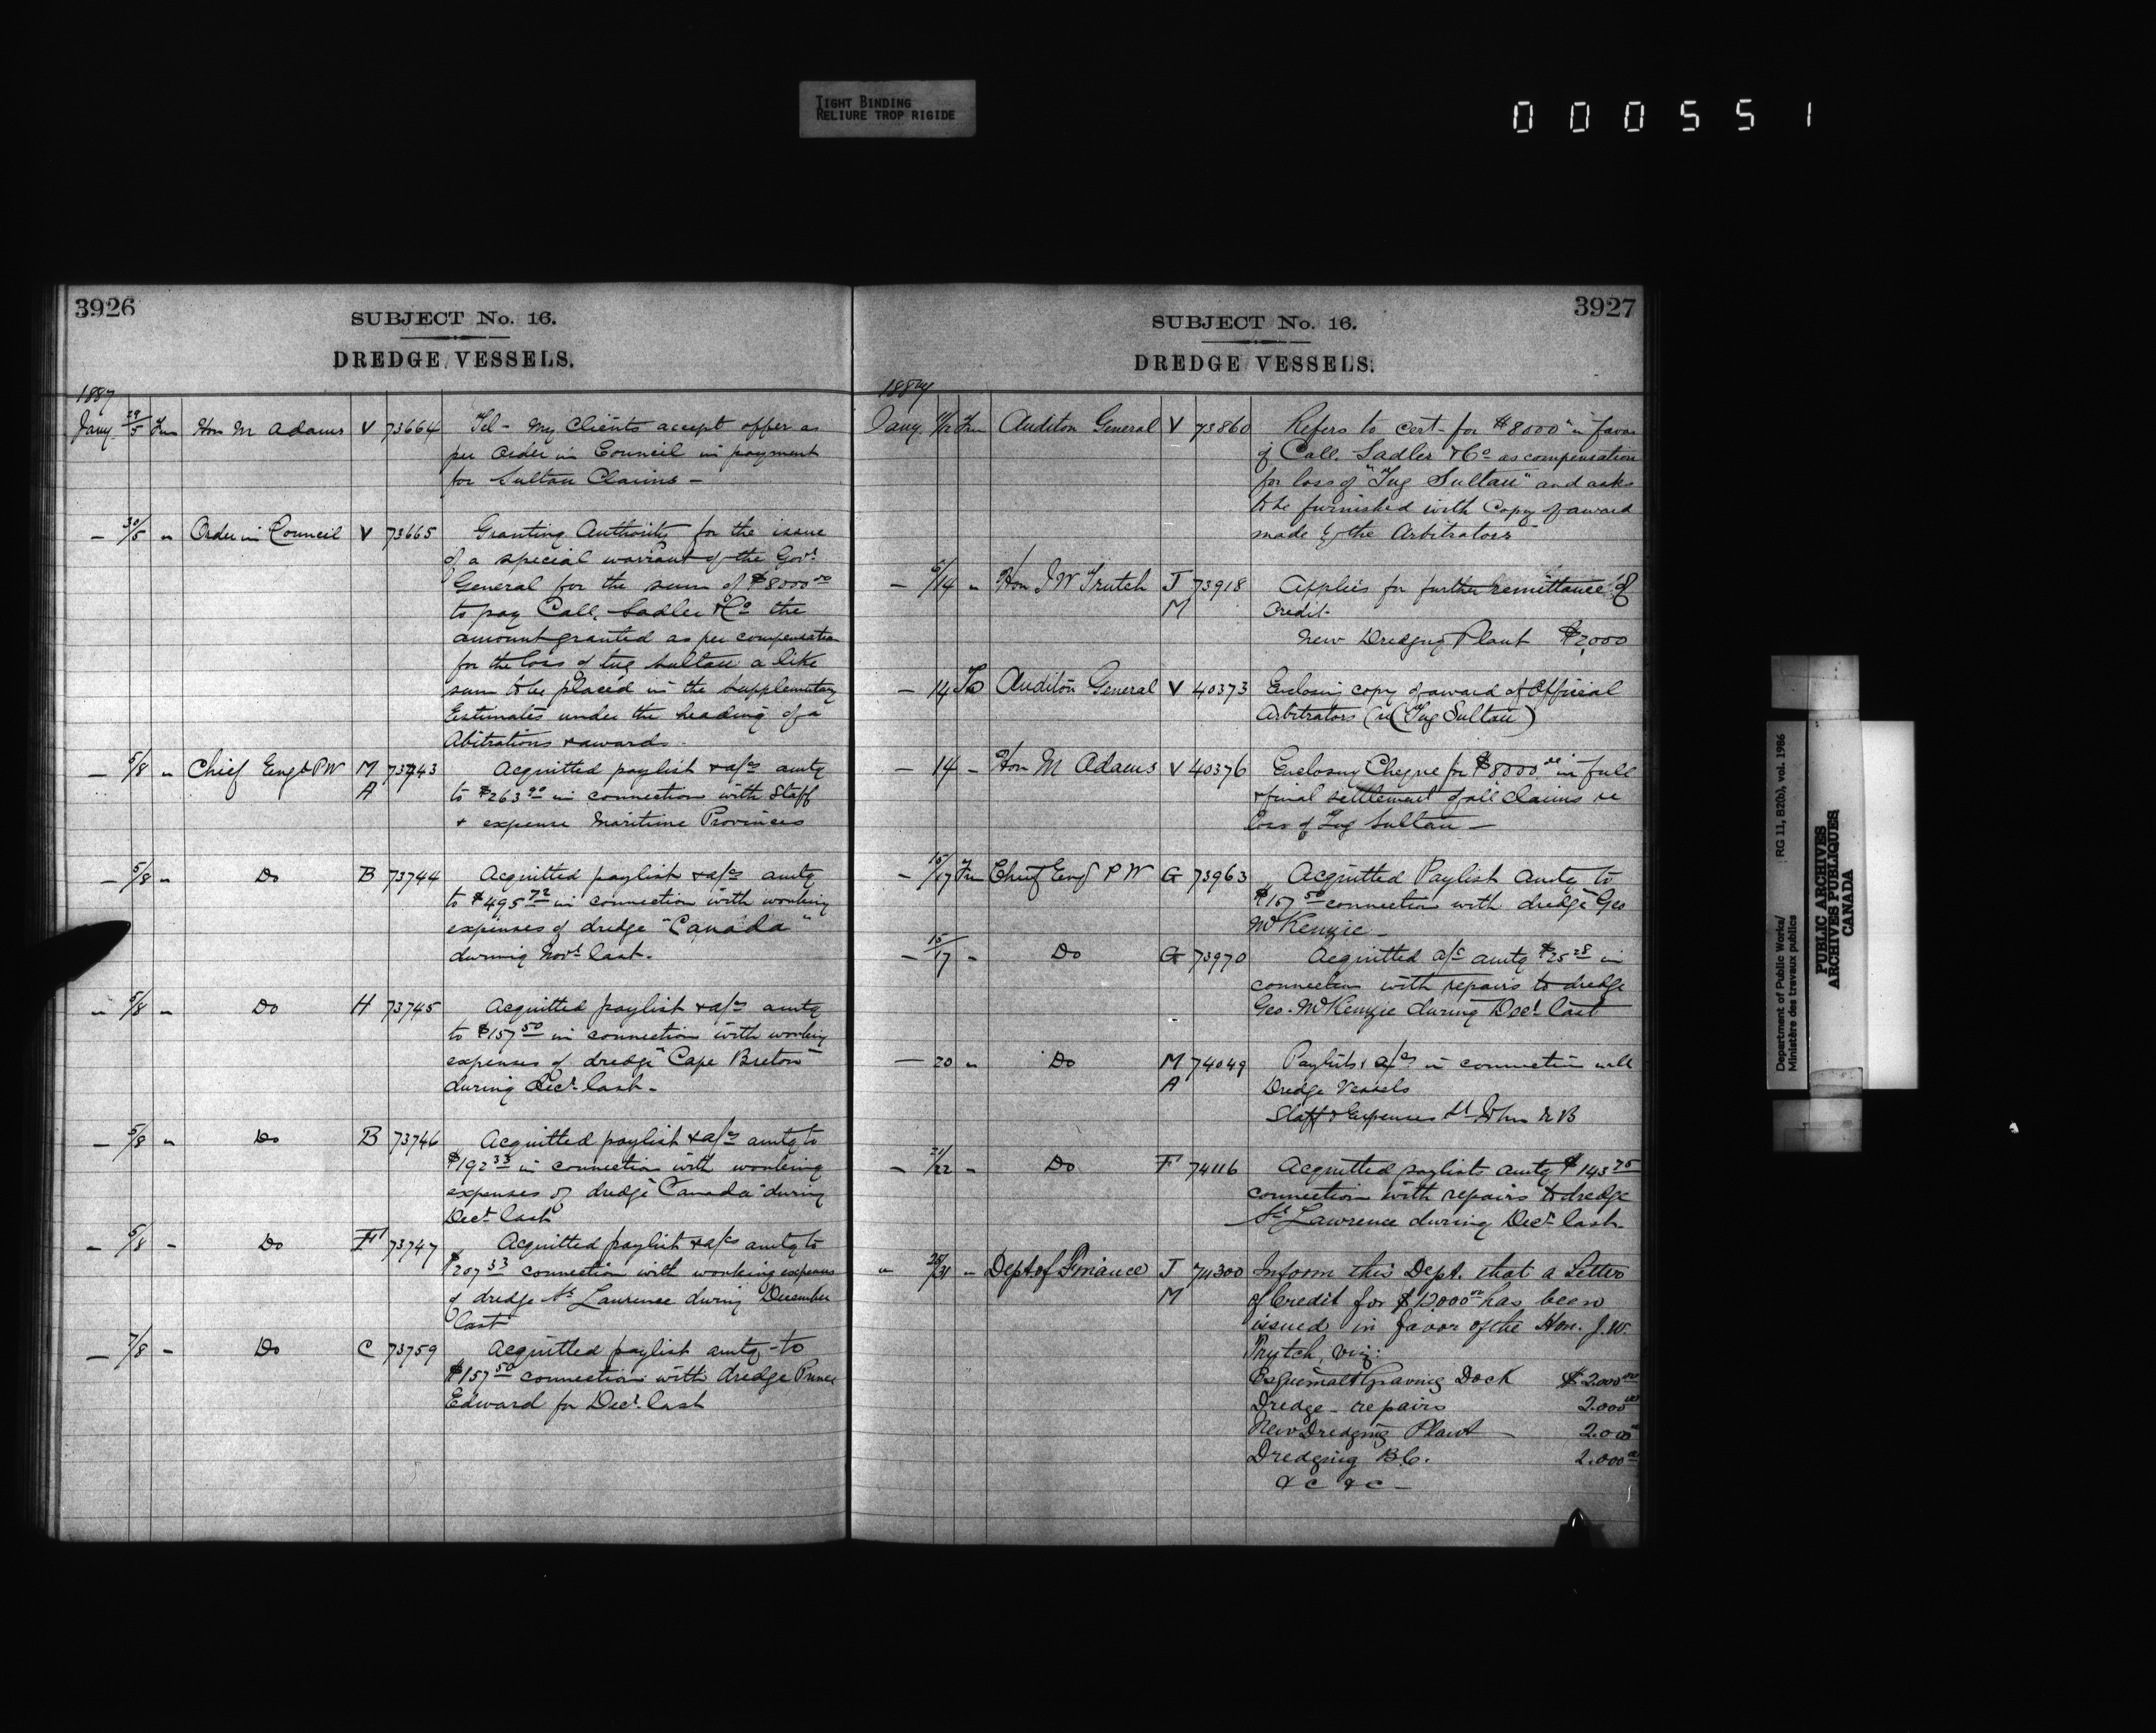 TIGHT BINDING
RELIURE TROP RIGIDE
000551
3926
SUBJECT No. 16.
DREDGE VESSELS.
1887
Jany 29/5 Frm Hon M Adams V 73664 Tel - My Clients accept offer as
per Order in Council in payment
for Sultan Claims -
- 30/5 " Order in Council V 73665 Granting Authority for the issue
of a special warrant of the Govr
General for the sum of $8000 00
to pay Call, Sadler & Co the
amount granted as per compensation
for the loss of tug Sultan a like
sum to be placed in the Supplementary
Estimates under the heading of a
Abitrations & awards -
- 5/8 " Chief Engr PW M A 73743 Acquitted paylist & a/cs amtg
to $263 90 in connection with Staff
& expense Maritime Provinces
- 5/8 " Do B 73744 Acquitted paylist & a/cs amtg
to $495 72 in connection with working
expenses of dredge "Canada"
during Novr last.
" 5/8 " Do H 73745 Acquitted paylist & a/cs amtg
to $157 50 in connection with working
expenses of dredge "Cape Breton"
during Decr last -
- 5/8 " Do B 73746 Acquitted paylist & a/cs amtg to
$192 33 in connection with working
expenses of dredge "Canada" during
Decr last
- 5/8 - Do F 73747 Acquitted paylist & a/cs amtg to
$207 33 connection with working expenses
of dredge St Laurence during December
last
- 7/8 - Do C 73759 Acquitted paylist amtg - to
$157 50 connection with dredge Prince
Edward for Decr last
3927
SUBJECT No. 16.
DREDGE VESSELS.
Jany Frm Auditor General V 73860 Refers to cert - for $8000 " in favor
of Call, Sadler & Co as compensation
for loss of "Tug Sultan" and asks
to be furnished with Copy of award
made by the Arbitrators
- /14 " Hon J W Trutch J M 73918 Applies for further remittance of
Credit -
New Dredging Plant $2,000
- 14 To Auditor General V 40373 Enclosing copy of award of Official
Arbitrators (re (Tug Sultan)
- 14 - Hon M Adams V 40376 Enclosing Cheque for $8000 00 in full
& final settlement of all claims re
loss of Tug Sultan -
- 15/17 Frm Chief Engr P W G 73963 Acquitted Paylist Amtg to
$157 50 connection with dredge Geo
McKenzie -
- 15/17 - Do G 73970 Acquitted a/c amtg $25 28 in
connection with repairs to dredge
Geo. McKenzie during Decr last
- 20 " Do M A 74049 Paylists & a/cs in connection with
Dredge Vessels
Staff & Expenses St John N B
- 21/22 - Do F 74116 Acquitted paylists amtg $143 75
connection with repairs to dredge
St Lawrence during Decr last -
" 25/31 - Dept of Finance J M 74300 Inform this Dept. that a Letter
of Credit for $12000 00 has been
issued in favor of the Hon. J. W.
Trutch, viz:
Esquimalt Graving Dock $2.000 00
Dredge - repairs 2.000 00
New Dredging Plant - 2.000 00
Dredging B.C. 2.000 00
&c &c -
Department of Public Works/
Ministère des travaux publics
RG 11, B2(b), vol. 1986
PUBLIC ARCHIVES
ARCHIVES PUBLIQUES
CANADA